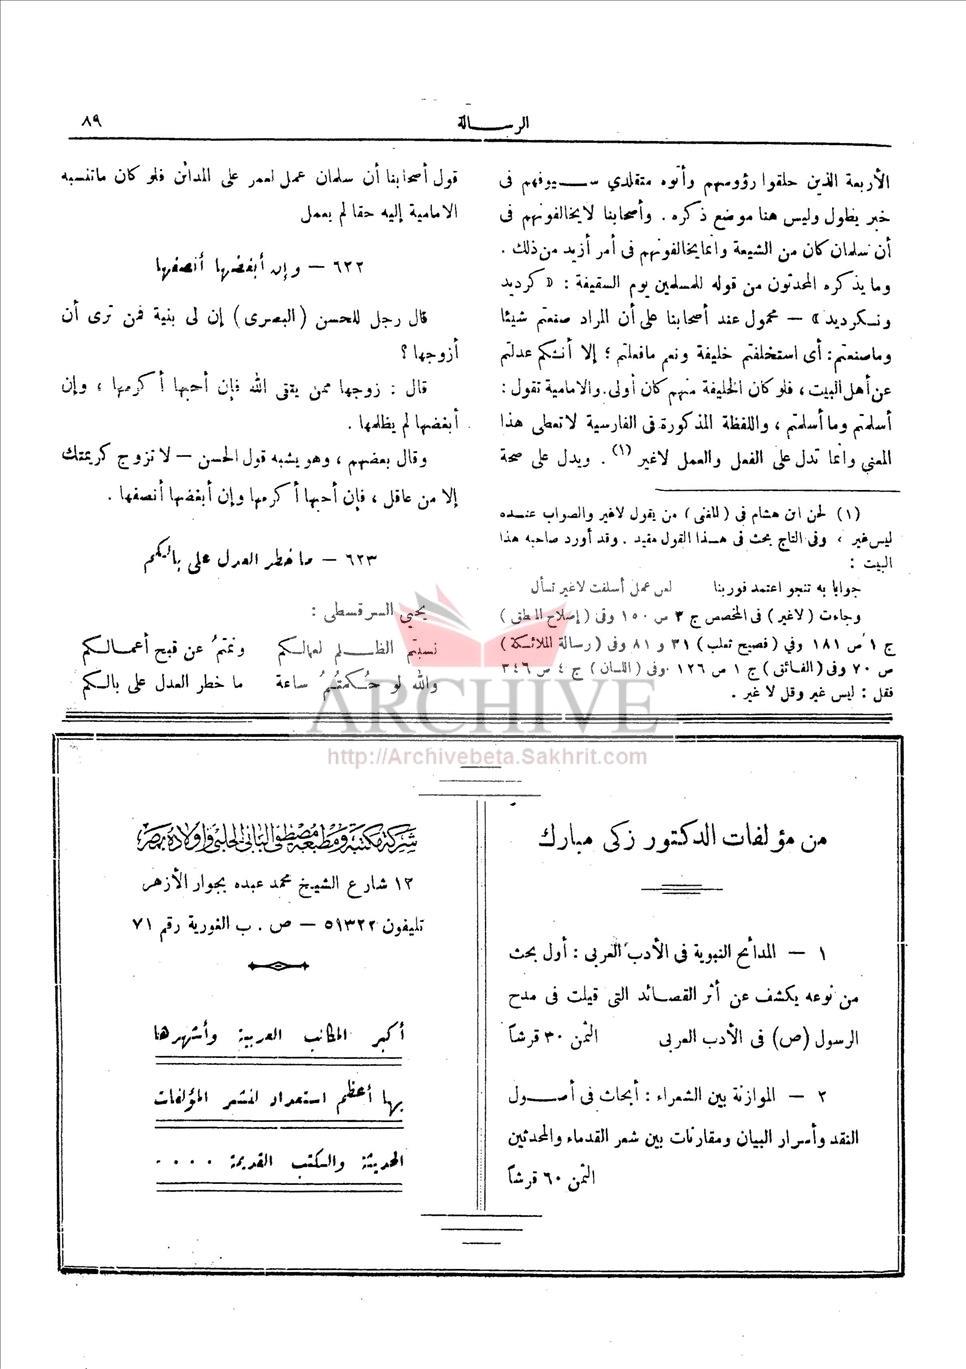 الرسالة
٨٩
الأربعة الذين حلقوا رؤوسهم وأتوه متقلدي سيوفهم فى
خبر يطول وليس هنا موضع ذكره . وأصحابنا لايخالفونهم فى
أن سلمان كان من الشيعة وانما يخالفونهم فى أمر أزيد من ذلك .
وما يذكره المحدثون من قوله للمسلمين يوم السقيفة : « كرديد
ونكرديد » — محمول عند أصحابنا على أن المراد صنعتم شيئا
وماصنعتم : أى استخلفتم خليفة ونعم مافعلتم ؛ إلا أنكم عدلتم
عن أهل البيت ، فلو كان الخليفة منهم كان أولى. والامامية تقول :
أسلمتم وما أسلمتم ، واللفظة المذكورة فى الفارسية لا تعطى هذا
المعنى وانما تدل على الفعل والعمل لاغير (١) . ويدل على صحة
(١) لحن ابن هشام فى ( المغنى ) من يقول لاغير والصواب عنده
ليس غير ، وفى التاج بحث فى هذا القول مفيد . وقد أورد صاحبه هذا
البيت :
جوابا به تنجو اعتمد فوربنا لعن عمل أسلفت لاغير تسأل
وجاءت ( لاغير ) فى المخصص ج ٣ س ١٥٠ وفى ( إصلاح المنطق )
ج ١ س ١٨١ وفي ( فصيح ثعلب ) ٣١ و ٨١ وفى ( رسالة الملائكة )
س ٧٠ وفى ( الفائق ) ج ١ س ١٢٦ وفى ( اللسان ) ج ٤ س ٣٤٦
فقل : ليس غير وقل لا غير .
قول أصحابنا أن سلمان عمل لعمر على المدائن فلو كان ماتنسبه
الامامية إليه حقا لم يعمل
٦٢٢ — وإن أبغضها أنصفها
قال رجل للحسن ( البصرى ) إن لى بنية فمن ترى أن
أزوجها ؟
قال : زوجها ممن يتقى الله فإن أحبها أكرمها ، وإن
أبغضها لم يظلمها .
وقال بعضهم ، وهو يشبه قول الحسن — لا تزوج كريمتك
إلا من عاقل ، فإن أحبها أكرمها وإن أبغضها أنصفها .
٦٢٣ — ما خطر العدل على بالكم
يحيى السرقسطى :
نسبتم الظلم لعمالكم ونمتم عن قبح أعمالكم
والله لو حُكمتمُ ساعة ما خطر العدل على بالكم
ARCHIVE
http://Archivebeta.Sakhrit.com
من مؤلفات الدكتور زكى مبارك
١ — المدائح النبوية فى الأدب العربى : أول بحث
من نوعه يكشف عن أثر القصائد التى قيلت فى مدح
الرسول (ص) فى الأدب العربى الثمن ٣٠ قرشاً
٢ — الموازنة بين الشعراء : أبحاث فى أصول
النقد وأسرار البيان ومقارنات بين شعر القدماء والمحدثين
الثمن ٦٠ قرشاً
شركة مكتبة ومطبعة مصطفى البابى الحلبى وأولاده بمصر
١٢ شارع الشيخ محمد عبده بجوار الأزهر
تليفون ٥١٣٢٢ — ص . ب الغورية رقم ٧١
أكبر المكاتب العربية وأشهرها
بها أعظم استعداد لنشر المؤلفات
الحديثة والكتب القديمة ....